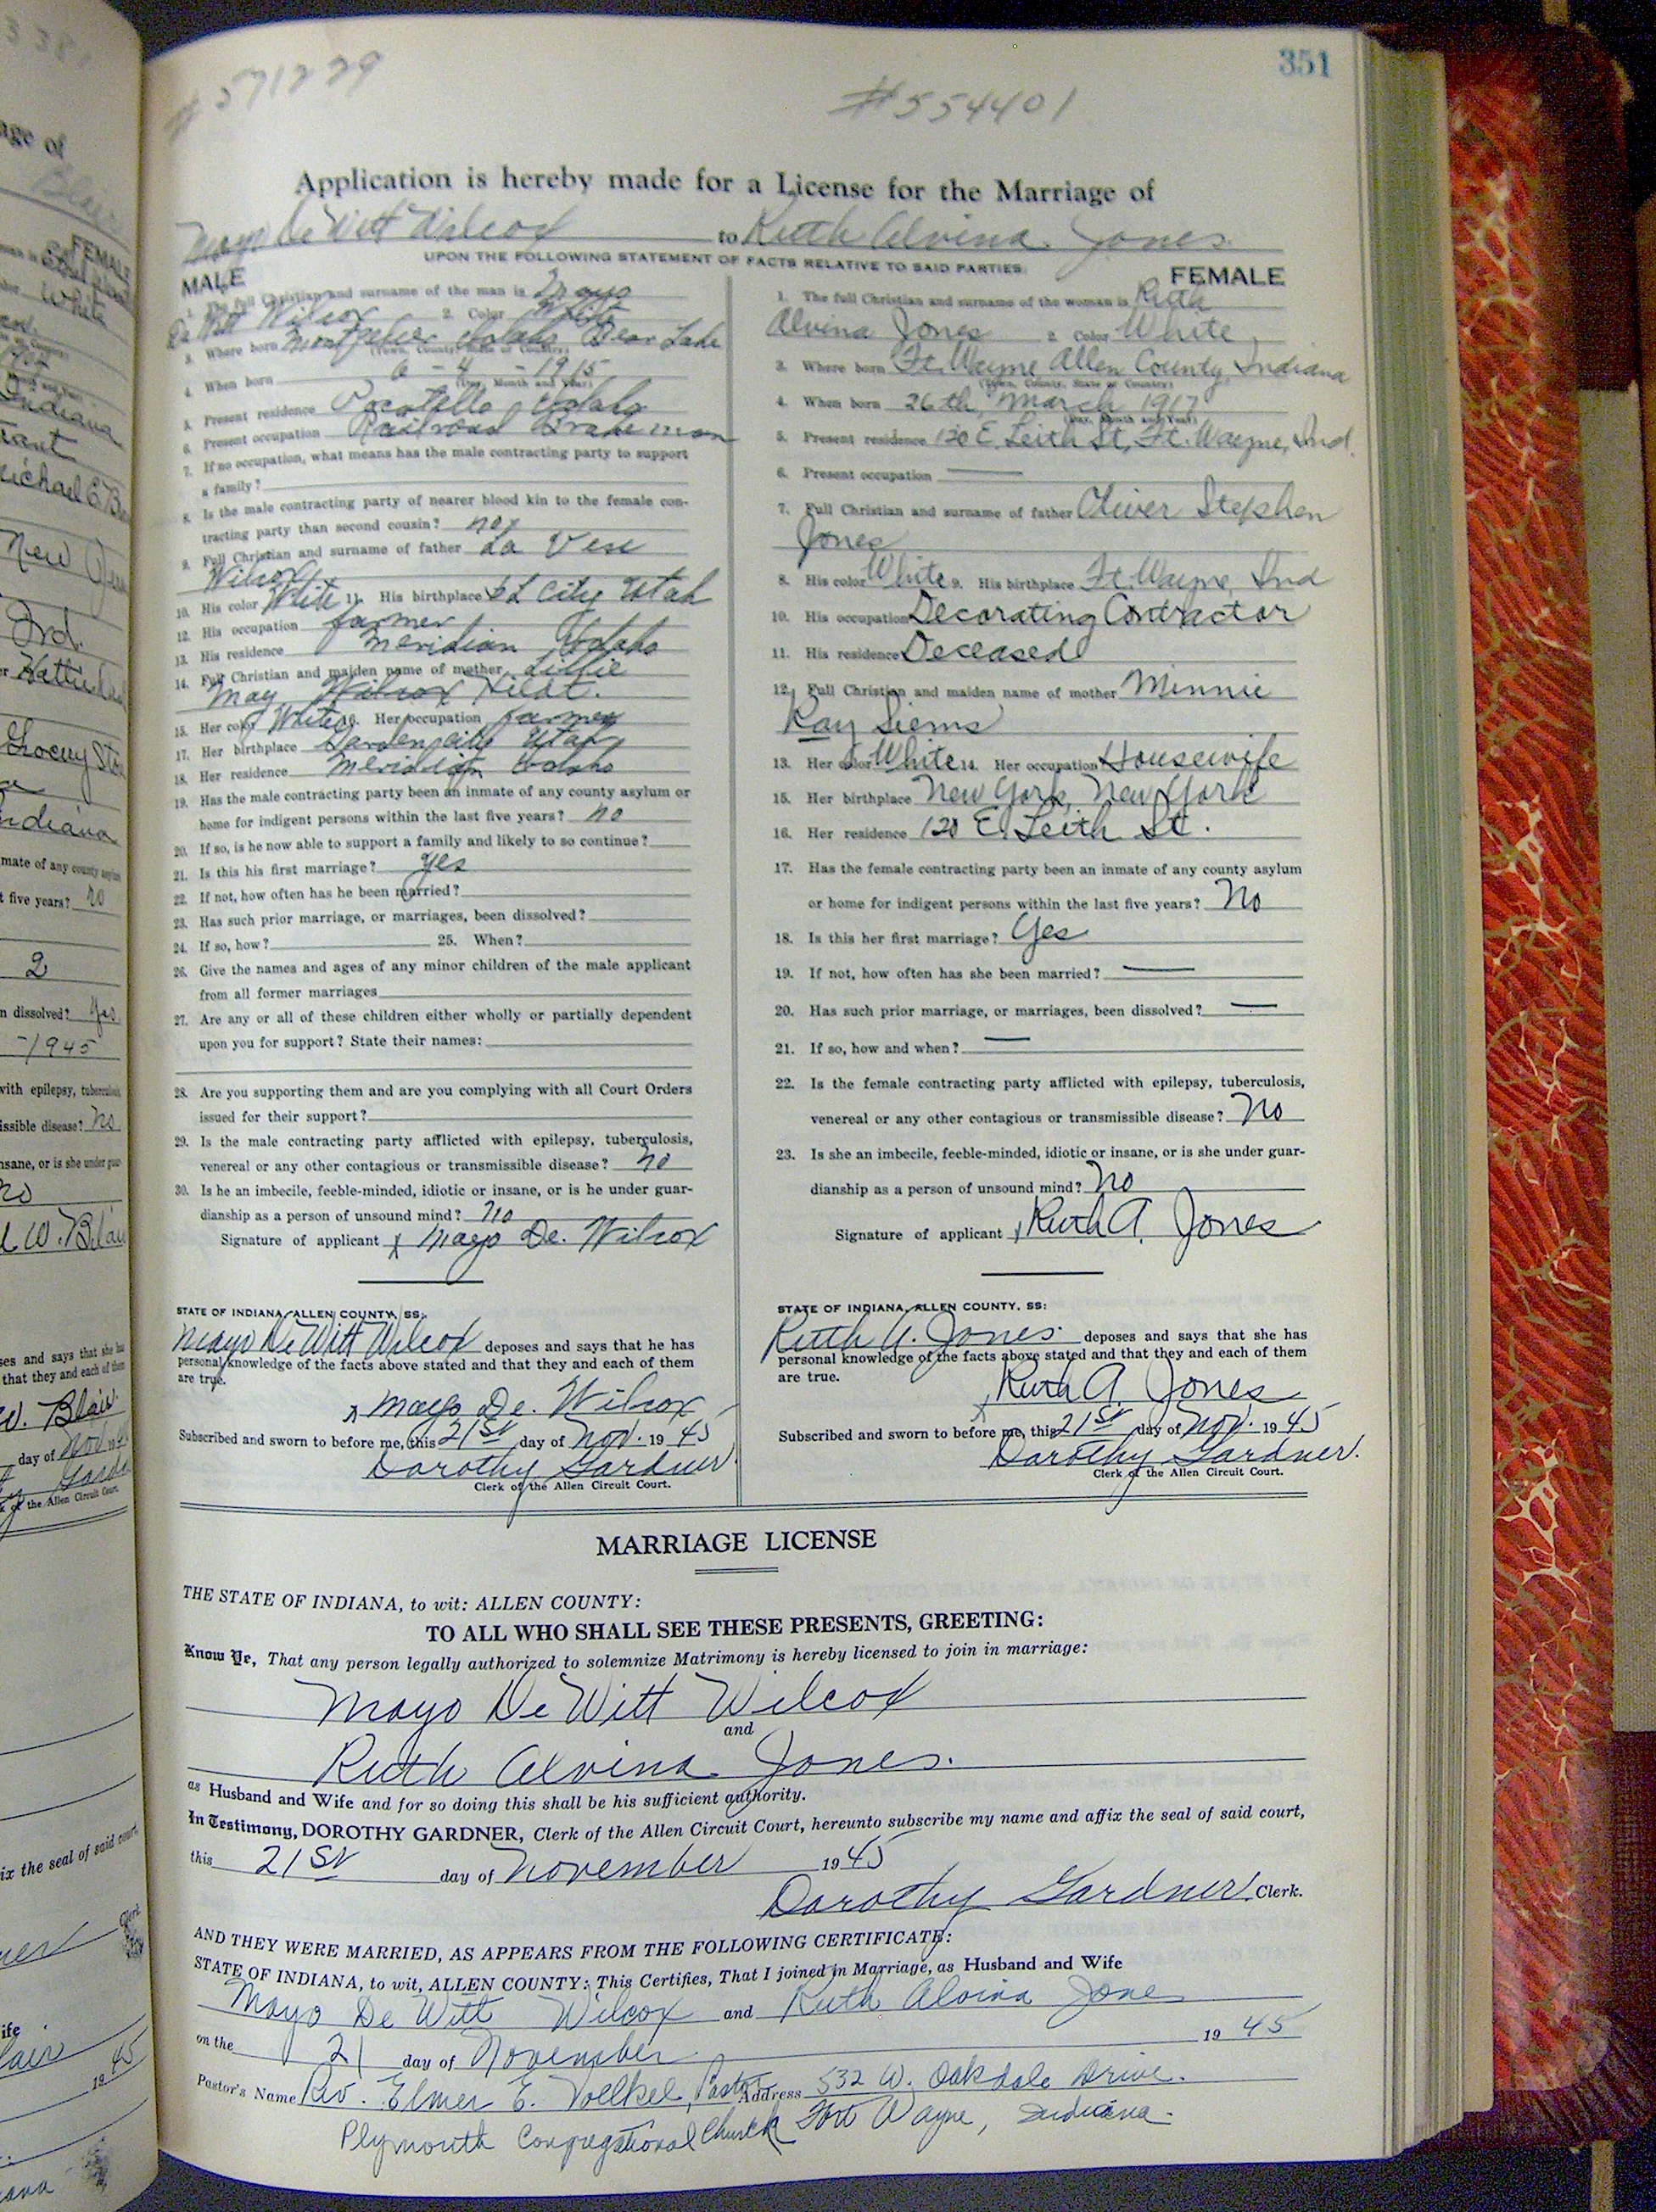 351
#571229
#554401
Application is hereby made for a License for the Marriage of
Mayo DeWitt Wilcox to Ruth Alvina Jones
UPON THE FOLLOWING STATEMENT OF FACTS RELATIVE TO SAID PARTIES:
MALE
1. The full Christian and surname of the man is Mayo
De Witt Wilcox 2. Color White
3. Where born Montpelier Idaho Bear Lake
(Town, County, State or Country)
4. When born 6 - 4 - 1915
(Day, Month and Year)
5. Present residence Pocatello Idaho
6. Present occupation Railroad Brakeman
7. If no occupation, what means has the male contracting party to support
a family?
8. Is the male contracting party of nearer blood kin to the female con-
tracting party than second cousin? no
9. Full Christian and surname of father La Vere
Wilcox
10. His color White 11. His birthplace S L City Utah
12. His occupation farmer
13. His residence Meridian Idaho
14. Full Christian and maiden name of mother Lillie
May Wilcox
15. Her color White 16. Her occupation farmer
17. Her birthplace Garden city Utah
18. Her residence Meridian Idaho
19. Has the male contracting party been an inmate of any county asylum or
home for indigent persons within the last five years? no
20. If so, is he now able to support a family and likely to so continue?
21. Is this his first marriage? yes
22. If not, how often has he been married?
23. Has such prior marriage, or marriages, been dissolved?
24. If so, how? 25. When?
26. Give the names and ages of any minor children of the male applicant
from all former marriages
27. Are any or all of these children either wholly or partially dependent
upon you for support? State their names:
28. Are you supporting them and are you complying with all Court Orders
issued for their support?
29. Is the male contracting party afflicted with epilepsy, tuberculosis,
venereal or any other contagious or transmissible disease? no
30. Is he an imbecile, feeble-minded, idiotic or insane, or is he under guar-
dianship as a person of unsound mind? no
Signature of applicant x Mayo De. Wilcox
STATE OF INDIANA, ALLEN COUNTY, SS:
Mayo DeWitt Wilcox deposes and says that he has
personal knowledge of the facts above stated and that they and each of them
are true.
x Mayo De. Wilcox
Subscribed and sworn to before me, this 21st day of Nov. 1945
Dorothy Gardner
Clerk of the Allen Circuit Court.
FEMALE
1. The full Christian and surname of the woman is Ruth
Alvina Jones 2. Color White
3. Where born Ft. Wayne Allen County, Indiana
(Town, County, State or Country)
4. When born 26th March 1917
(Day, Month and Year)
5. Present residence 120 E. Leith St, Ft. Wayne, Ind.
6. Present occupation
7. Full Christian and surname of father Oliver Stephen
Jones
8. His color White 9. His birthplace Ft. Wayne, Ind
10. His occupation Decorating Contractor
11. His residence Deceased
12. Full Christian and maiden name of mother Minnie
Kay Siems
13. Her color White 14. Her occupation Housewife
15. Her birthplace New York, New York
16. Her residence 120 E. Leith St.
17. Has the female contracting party been an inmate of any county asylum
or home for indigent persons within the last five years? No
18. Is this her first marriage? Yes
19. If not, how often has she been married?
20. Has such prior marriage, or marriages, been dissolved?
21. If so, how and when?
22. Is the female contracting party afflicted with epilepsy, tuberculosis,
venereal or any other contagious or transmissible disease? No
23. Is she an imbecile, feeble-minded, idiotic or insane, or is she under guar-
dianship as a person of unsound mind? No
Signature of applicant x Ruth A. Jones
STATE OF INDIANA, ALLEN COUNTY, SS:
Ruth A. Jones deposes and says that she has
personal knowledge of the facts above stated and that they and each of them
are true.
x Ruth A. Jones
Subscribed and sworn to before me, this 21st day of Nov. 1945
Dorothy Gardner.
Clerk of the Allen Circuit Court.
MARRIAGE LICENSE
THE STATE OF INDIANA, to wit: ALLEN COUNTY:
TO ALL WHO SHALL SEE THESE PRESENTS, GREETING:
Know Ye, That any person legally authorized to solemnize Matrimony is hereby licensed to join in marriage:
Mayo DeWitt Wilcox
and
Ruth Alvina Jones.
as Husband and Wife and for so doing this shall be his sufficient authority.
In Testimony, DOROTHY GARDNER, Clerk of the Allen Circuit Court, hereunto subscribe my name and affix the seal of said court,
this 21st day of November 1945
Dorothy Gardner Clerk.
AND THEY WERE MARRIED, AS APPEARS FROM THE FOLLOWING CERTIFICATE:
STATE OF INDIANA, to wit, ALLEN COUNTY: This Certifies, That I joined in Marriage, as Husband and Wife
Mayo De Witt Wilcox and Ruth Alvina Jones
on the 21 day of November 1945
Pastor's Name Rev. Elmer E. Voelkel, Pastor Address 532 W. Oakdale Drive.
Plymouth Congregational Church Fort Wayne, Indiana.